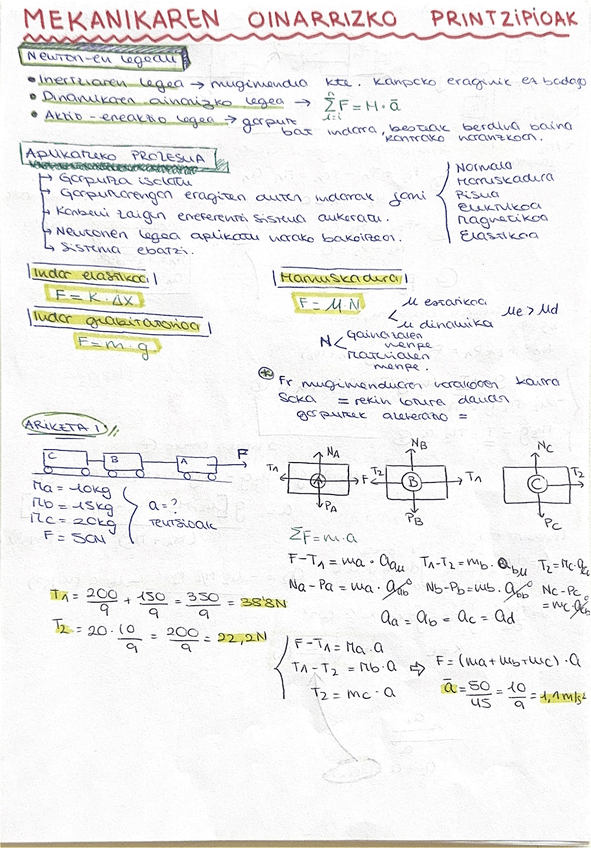 MEKANIKAREN OINARRIZKO PRINTZIPIOAK
Newton-en legeak
• Inertziaren legea → mugimendua kte. kanpoko eraginik ez badago
• Dinamikaren oinarrizko legea → Σ F = M · ā
n
i=1
• Akzio-erreakzio legea → gorputz bat indara, besteak berdina baina
kontrako norantzkoan.
Aplikatzeko PROZESUA
↳ Gorputza isolatu
↳ Gorputzarengan eragiten duten indarrak jarri
↳ Komeni zaigun erreferentzi sistema aukeratu.
↳ Newtonen legea aplikatu norako bakoitzean.
↳ Sistema ebatzi.
Normala
Marruskadura
Pisua
Elektrikoa
Magnetikoa
Elastikoa
Indar elastikoa
F = K · Δx
Indar grabitatorioa
F = m · g
Marruskadura
F = μ · N
μ estatikoa
μ dinamika
μe > μd
N < Gainazalen menpe
Materialen menpe.
* Fr mugimenduaren norakoaren kontra
Soka = rekin lotura dauden
gorputzek azelerazio =
ARIKETA 1
C B A F
Ma = 10kg
Mb = 15kg
Mc = 20kg
F = 50N
a = ?
tentsioak
NA T1 A F PA
NB T2 B T1 PB
NC C T2 PC
ΣF = m · a
F - T1 = ma · aax T1 - T2 = mb · abx T2 = mc · acx
Na - Pa = ma · aay0 Nb - Pb = mb · aby0 Nc - Pc = mc · acy0
aa = ab = ac = ad
T1 = 200/9 + 150/9 = 350/9 = 38'8N
T2 = 20 · 10/9 = 200/9 = 22,2N
F - T1 = Ma · a
T1 - T2 = Mb · a ⇨ F = (ma + mb + mc) · a
T2 = mc · a
ā = 50/45 = 10/9 = 1,1 m/s²